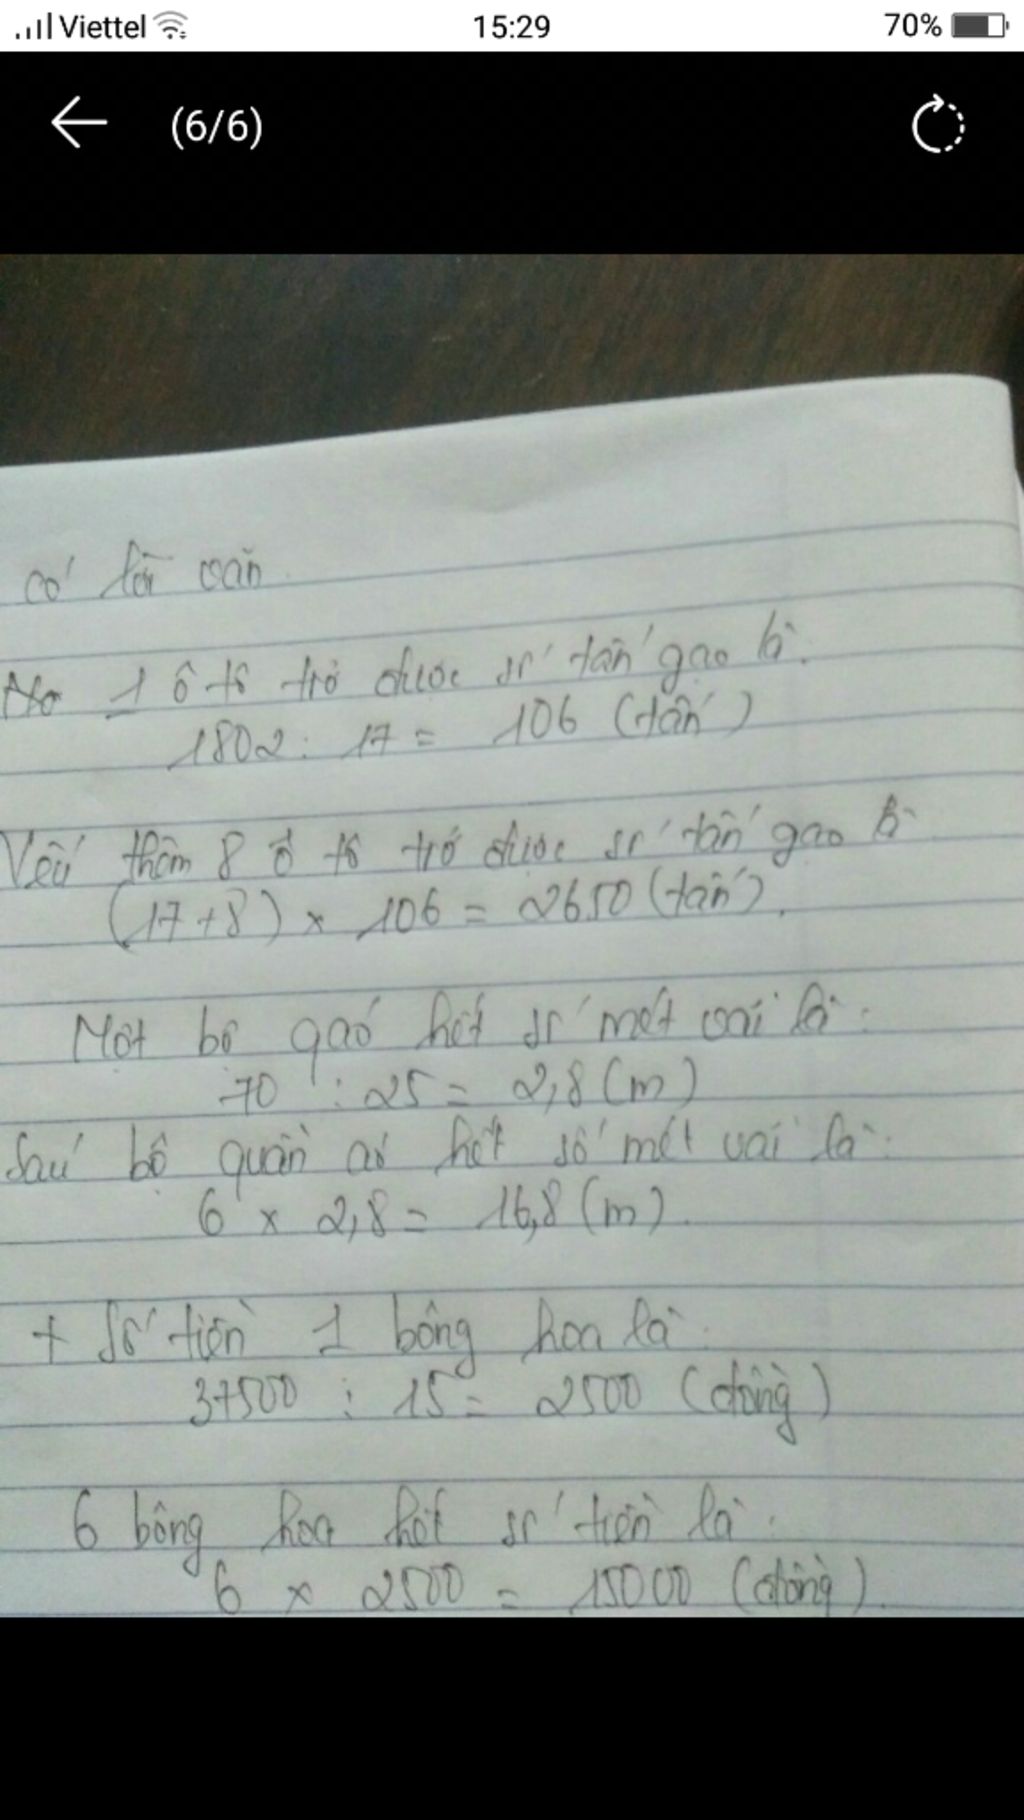 Viettel 15:29 70%
(6/6)
có lời văn.
1 ô tô trở được số tấn gạo là:
1802 : 17 = 106 (tấn)
thêm 8 ô tô trở được số tấn gạo là
(17+8) x 106 = 2650 (tấn).
Một bộ hết số mét vải là:
70 : 25 = 2,8 (m)
Sáu bộ quần áo hết số mét vải là:
6 x 2,8 = 16,8 (m).
+ Số tiền 1 bông hoa là:
37500 : 15 = 2500 (đồng)
6 bông hoa hết số tiền là:
6 x 2500 = 15000 (đồng).